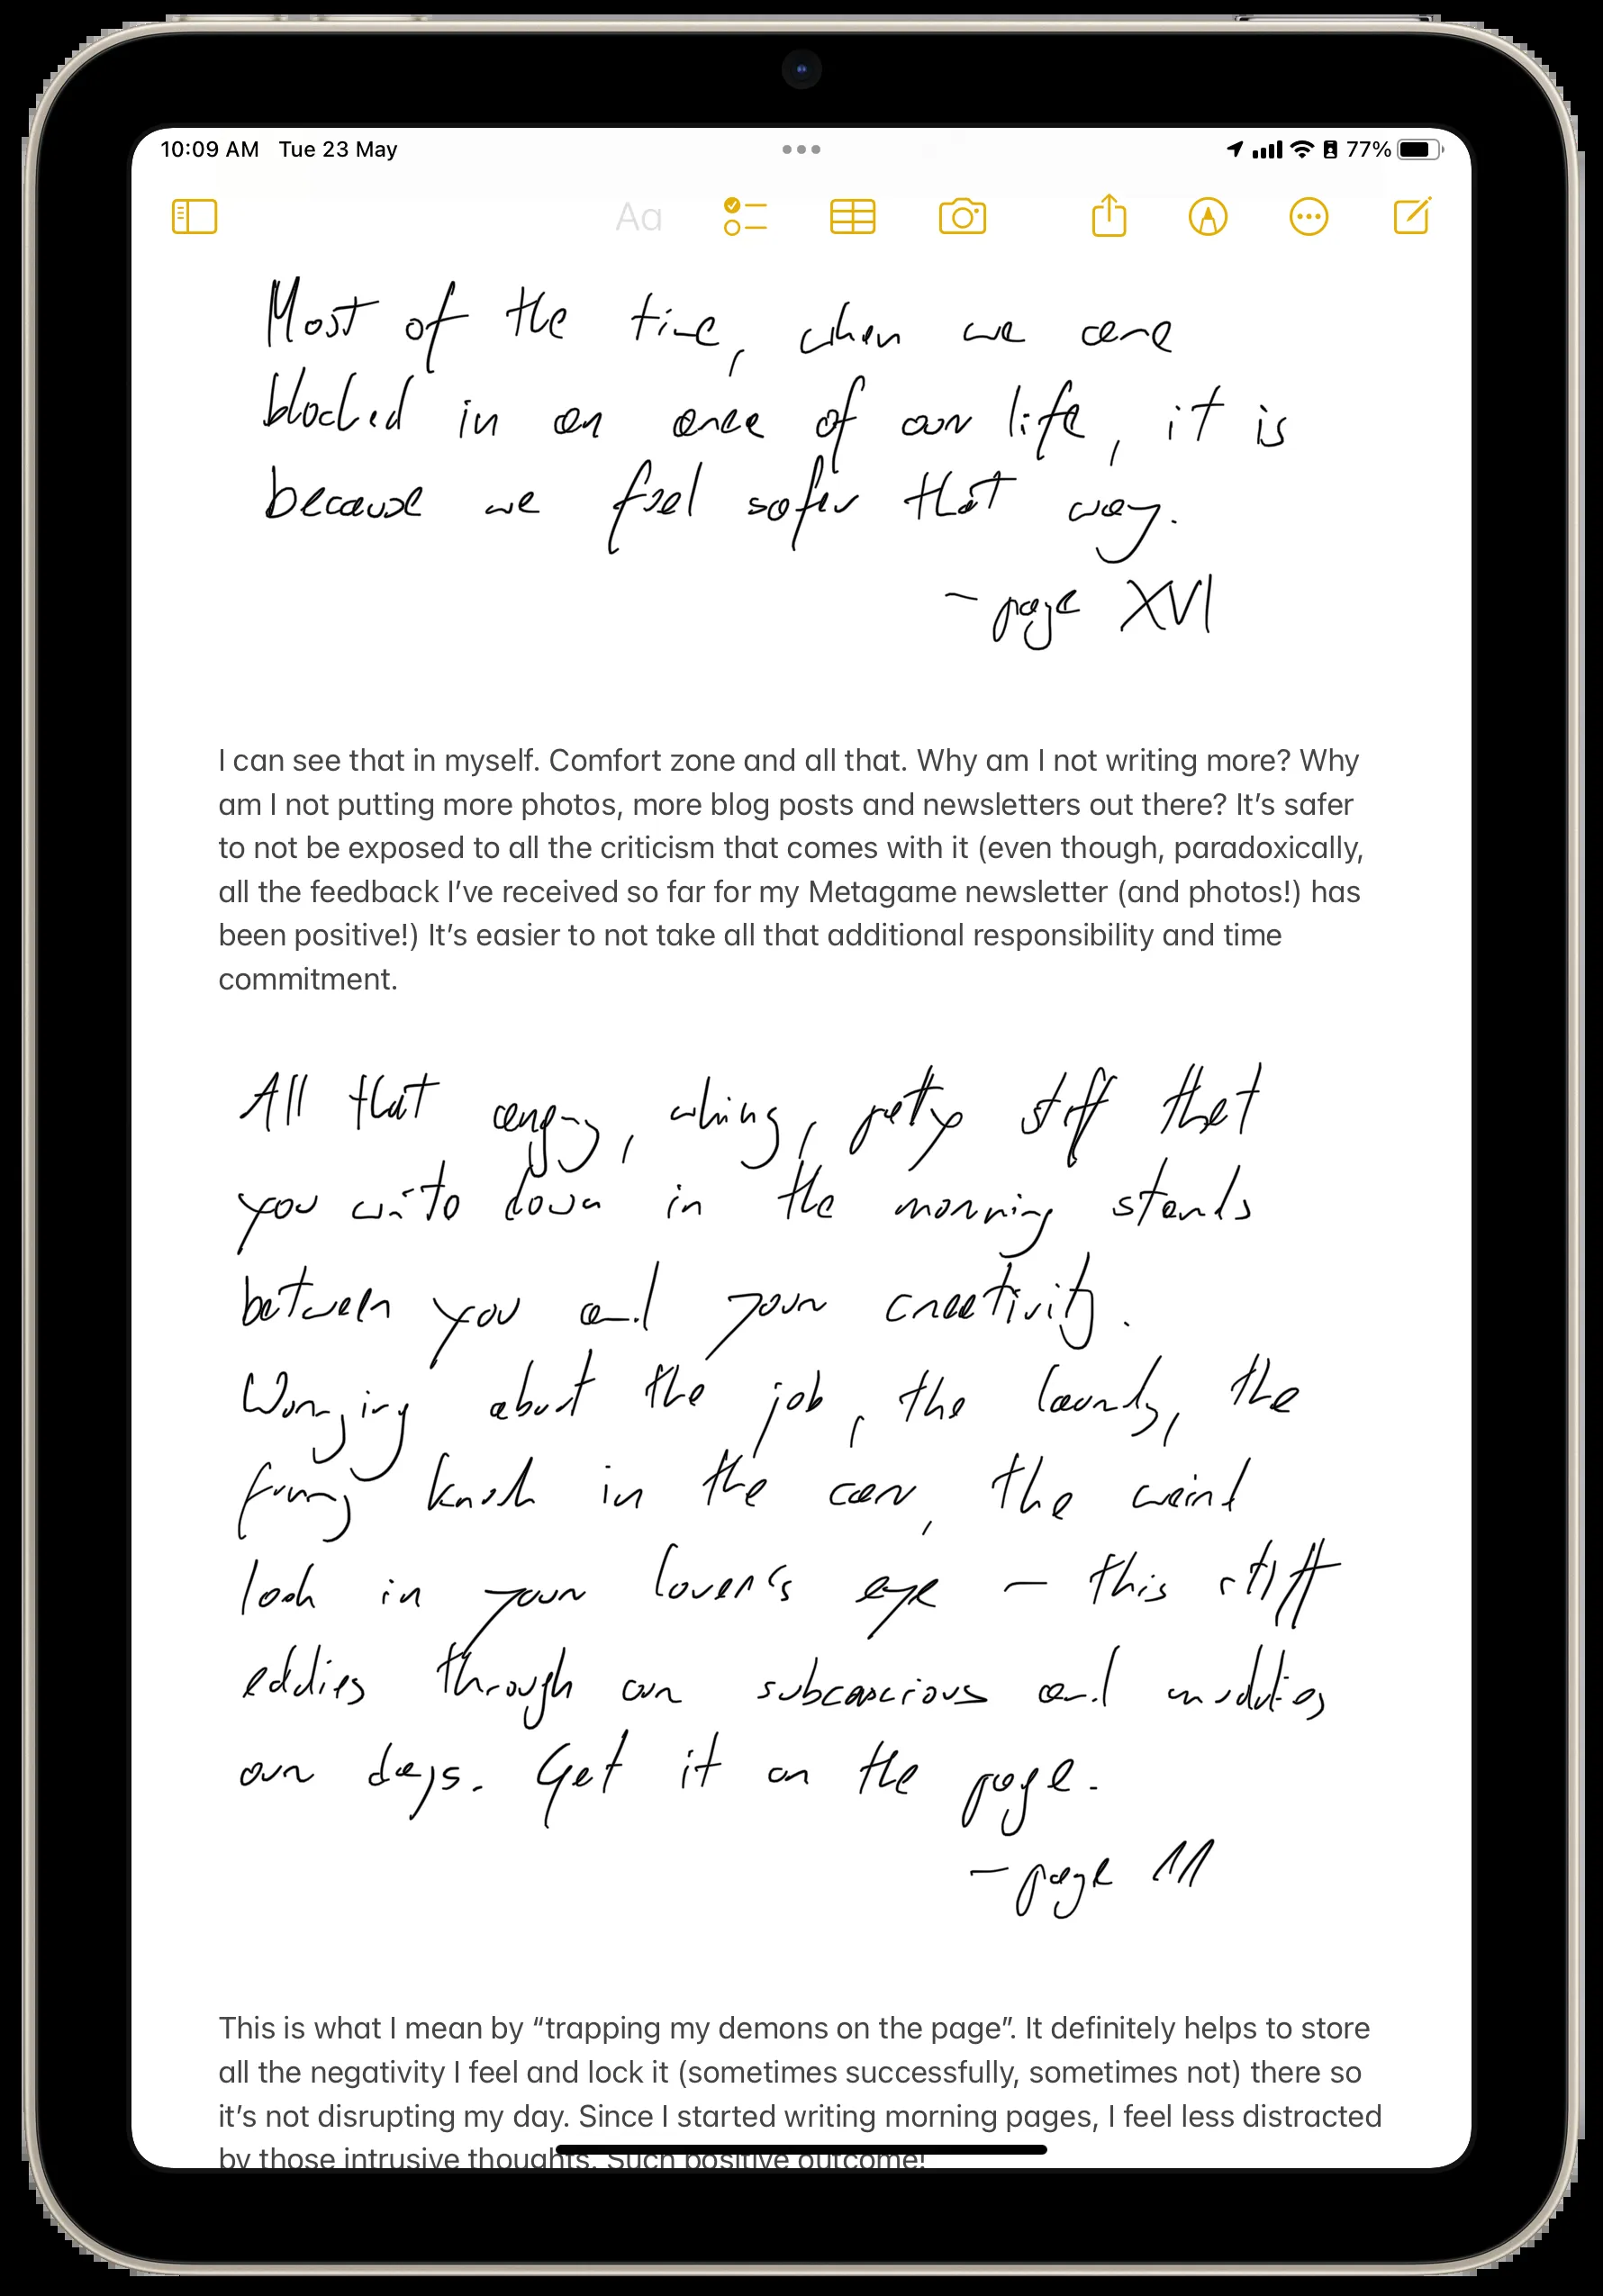 10:09 AM Tue 23 May
77%
Aa
Most of the time, when we are
blocked in an area of our life, it is
because we feel safer that way.
– page XVI
I can see that in myself. Comfort zone and all that. Why am I not writing more? Why
am I not putting more photos, more blog posts and newsletters out there? It’s safer
to not be exposed to all the criticism that comes with it (even though, paradoxically,
all the feedback I’ve received so far for my Metagame newsletter (and photos!) has
been positive!) It’s easier to not take all that additional responsibility and time
commitment.
All that angry, whiny, petty stuff that
you write down in the morning stands
between you and your creativity.
Worrying about the job, the laundry, the
funny knock in the car, the weird
look in your lover's eye – this stuff
eddies through our subconscious and muddies
our days. Get it on the page.
– page 11
This is what I mean by “trapping my demons on the page”. It definitely helps to store
all the negativity I feel and lock it (sometimes successfully, sometimes not) there so
it’s not disrupting my day. Since I started writing morning pages, I feel less distracted
by those intrusive thoughts. Such positive outcome!